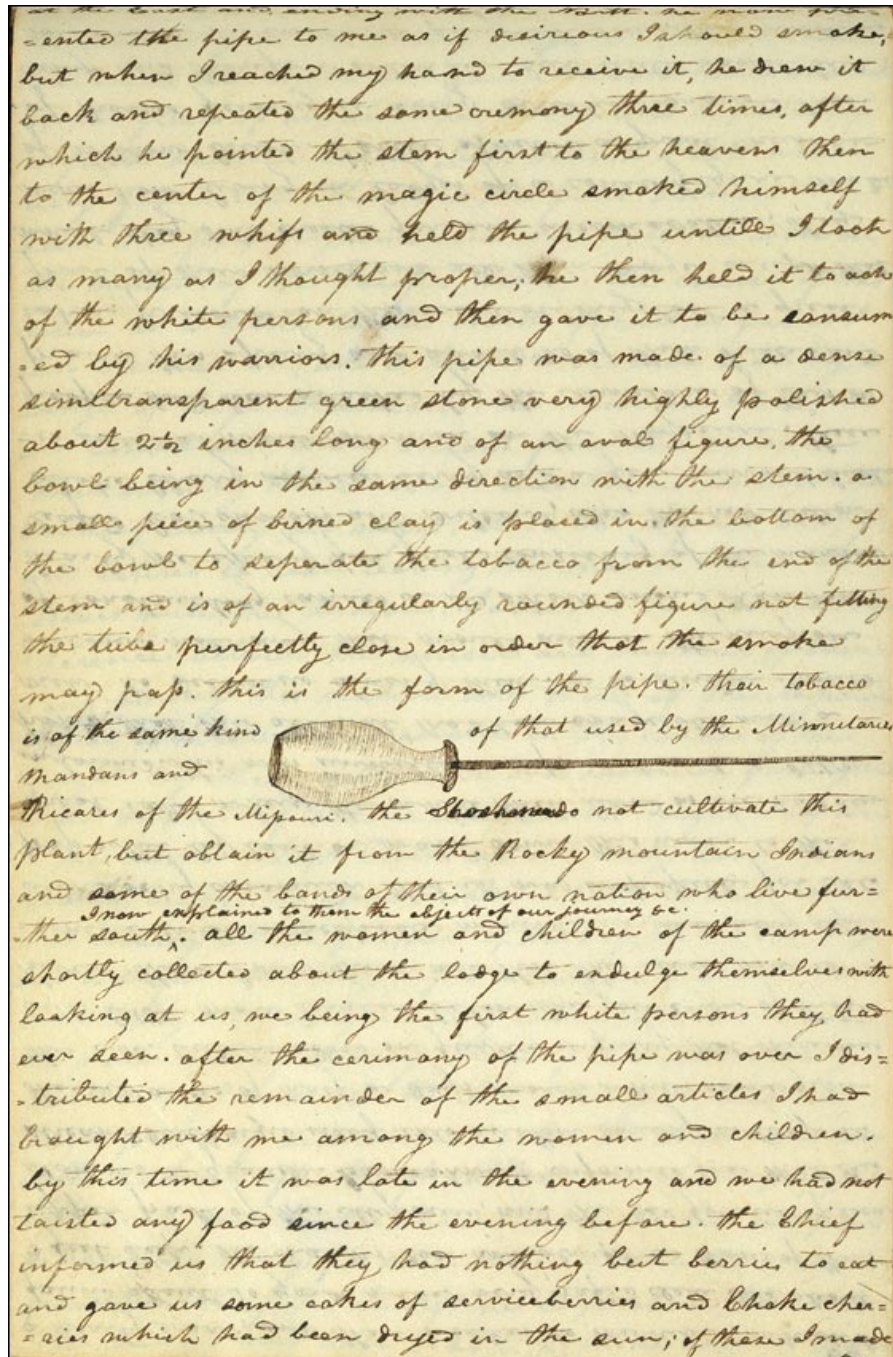 at the East and ending with the North. he now pre-
=ented the pipe to me as if desirious I should smoke,
but when I reached my hand to receive it, he drew it
back and repeated the same cremony three times, after
which he pointed the stem first to the heavens then
to the center of the magic circle smoked himself
with three whifs and held the pipe untill I took
as many as I thought proper; he then held it to each
of the white persons and then gave it to be consum
=ed by his warriors. this pipe was made of a dense
simitransparent green stone very highly polished
about 2 1/2 inches long and of an oval figure, the
bowl being in the same direction with the stem. a
small piece of birned clay is placed in the bottom of
the bowl to seperate the tobacco from the end of the
stem and is of an irregularly rounded figure not fitting
the tube purfectly close in order that the smoke
may pass. this is the form of the pipe. their tobacco
is of the same kind of that used by the Minnetares
mandans and
Ricares of the Missouri. the Shoshonees do not cultivate this
plant, but obtain it from the Rocky mountain Indians
and some of the bands of their own nation who live fur=
I now explained to them the objects of our journey &c.
ther south. all the women and children of the camp were
shortly collected about the lodge to endulge themselves with
looking at us, we being the first white persons they had
ever seen. after the cerimony of the pipe was over I dis=
=tributed the remainder of the small articles I had
brought with me among the women and children.
by this time it was late in the evening and we had not
taisted any food since the evening before. the Chief
informed us that they had nothing but berries to eat
and gave us some cakes of serviceberries and Choke cher=
=ries which had been dryed in the sun; of these I made